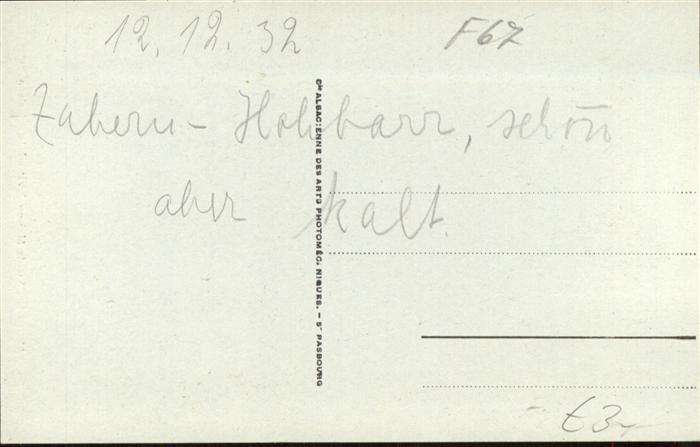 12.12.32
F67
Zabern - Hohbarr, schön
aber kalt.
Cie ALSACIENNE DES ARTS PHOTOMÉCANIQUES. - STRASBOURG
€3-